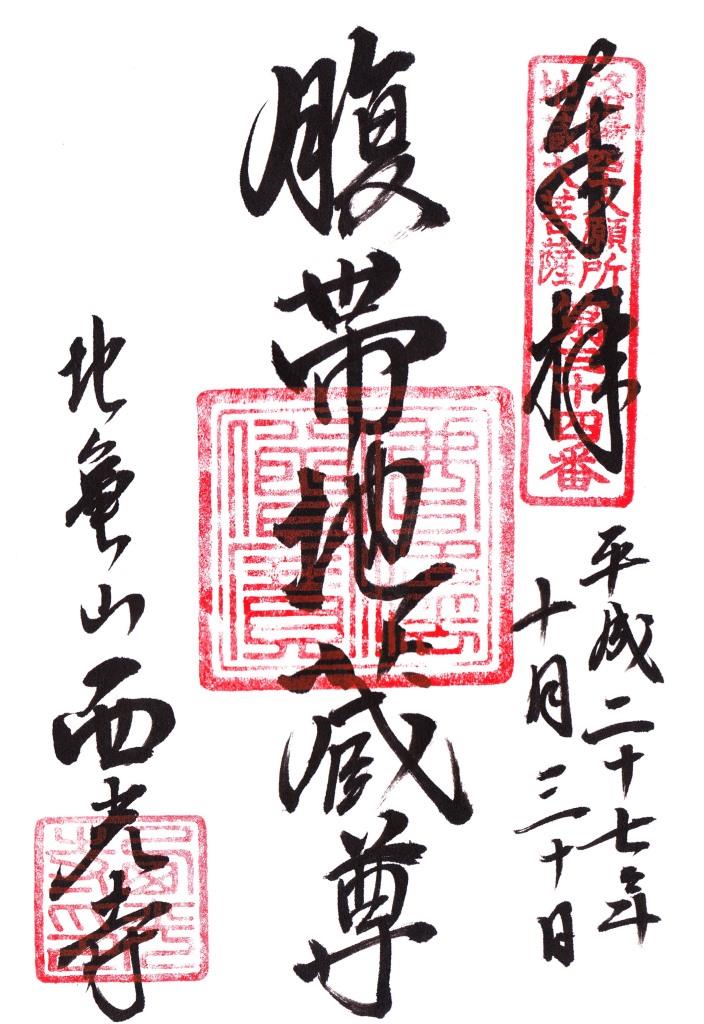 奉拝
洛陽四十八願所
地蔵大菩薩
第三十四番
平成二十七年
十月三十日
腹帯地蔵尊
北亀山西光寺